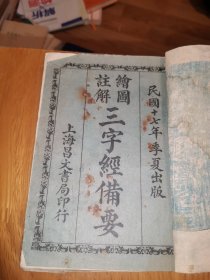 民國十七年季夏出版
繪圖
註解
三字經備要
上海昌文書局印行